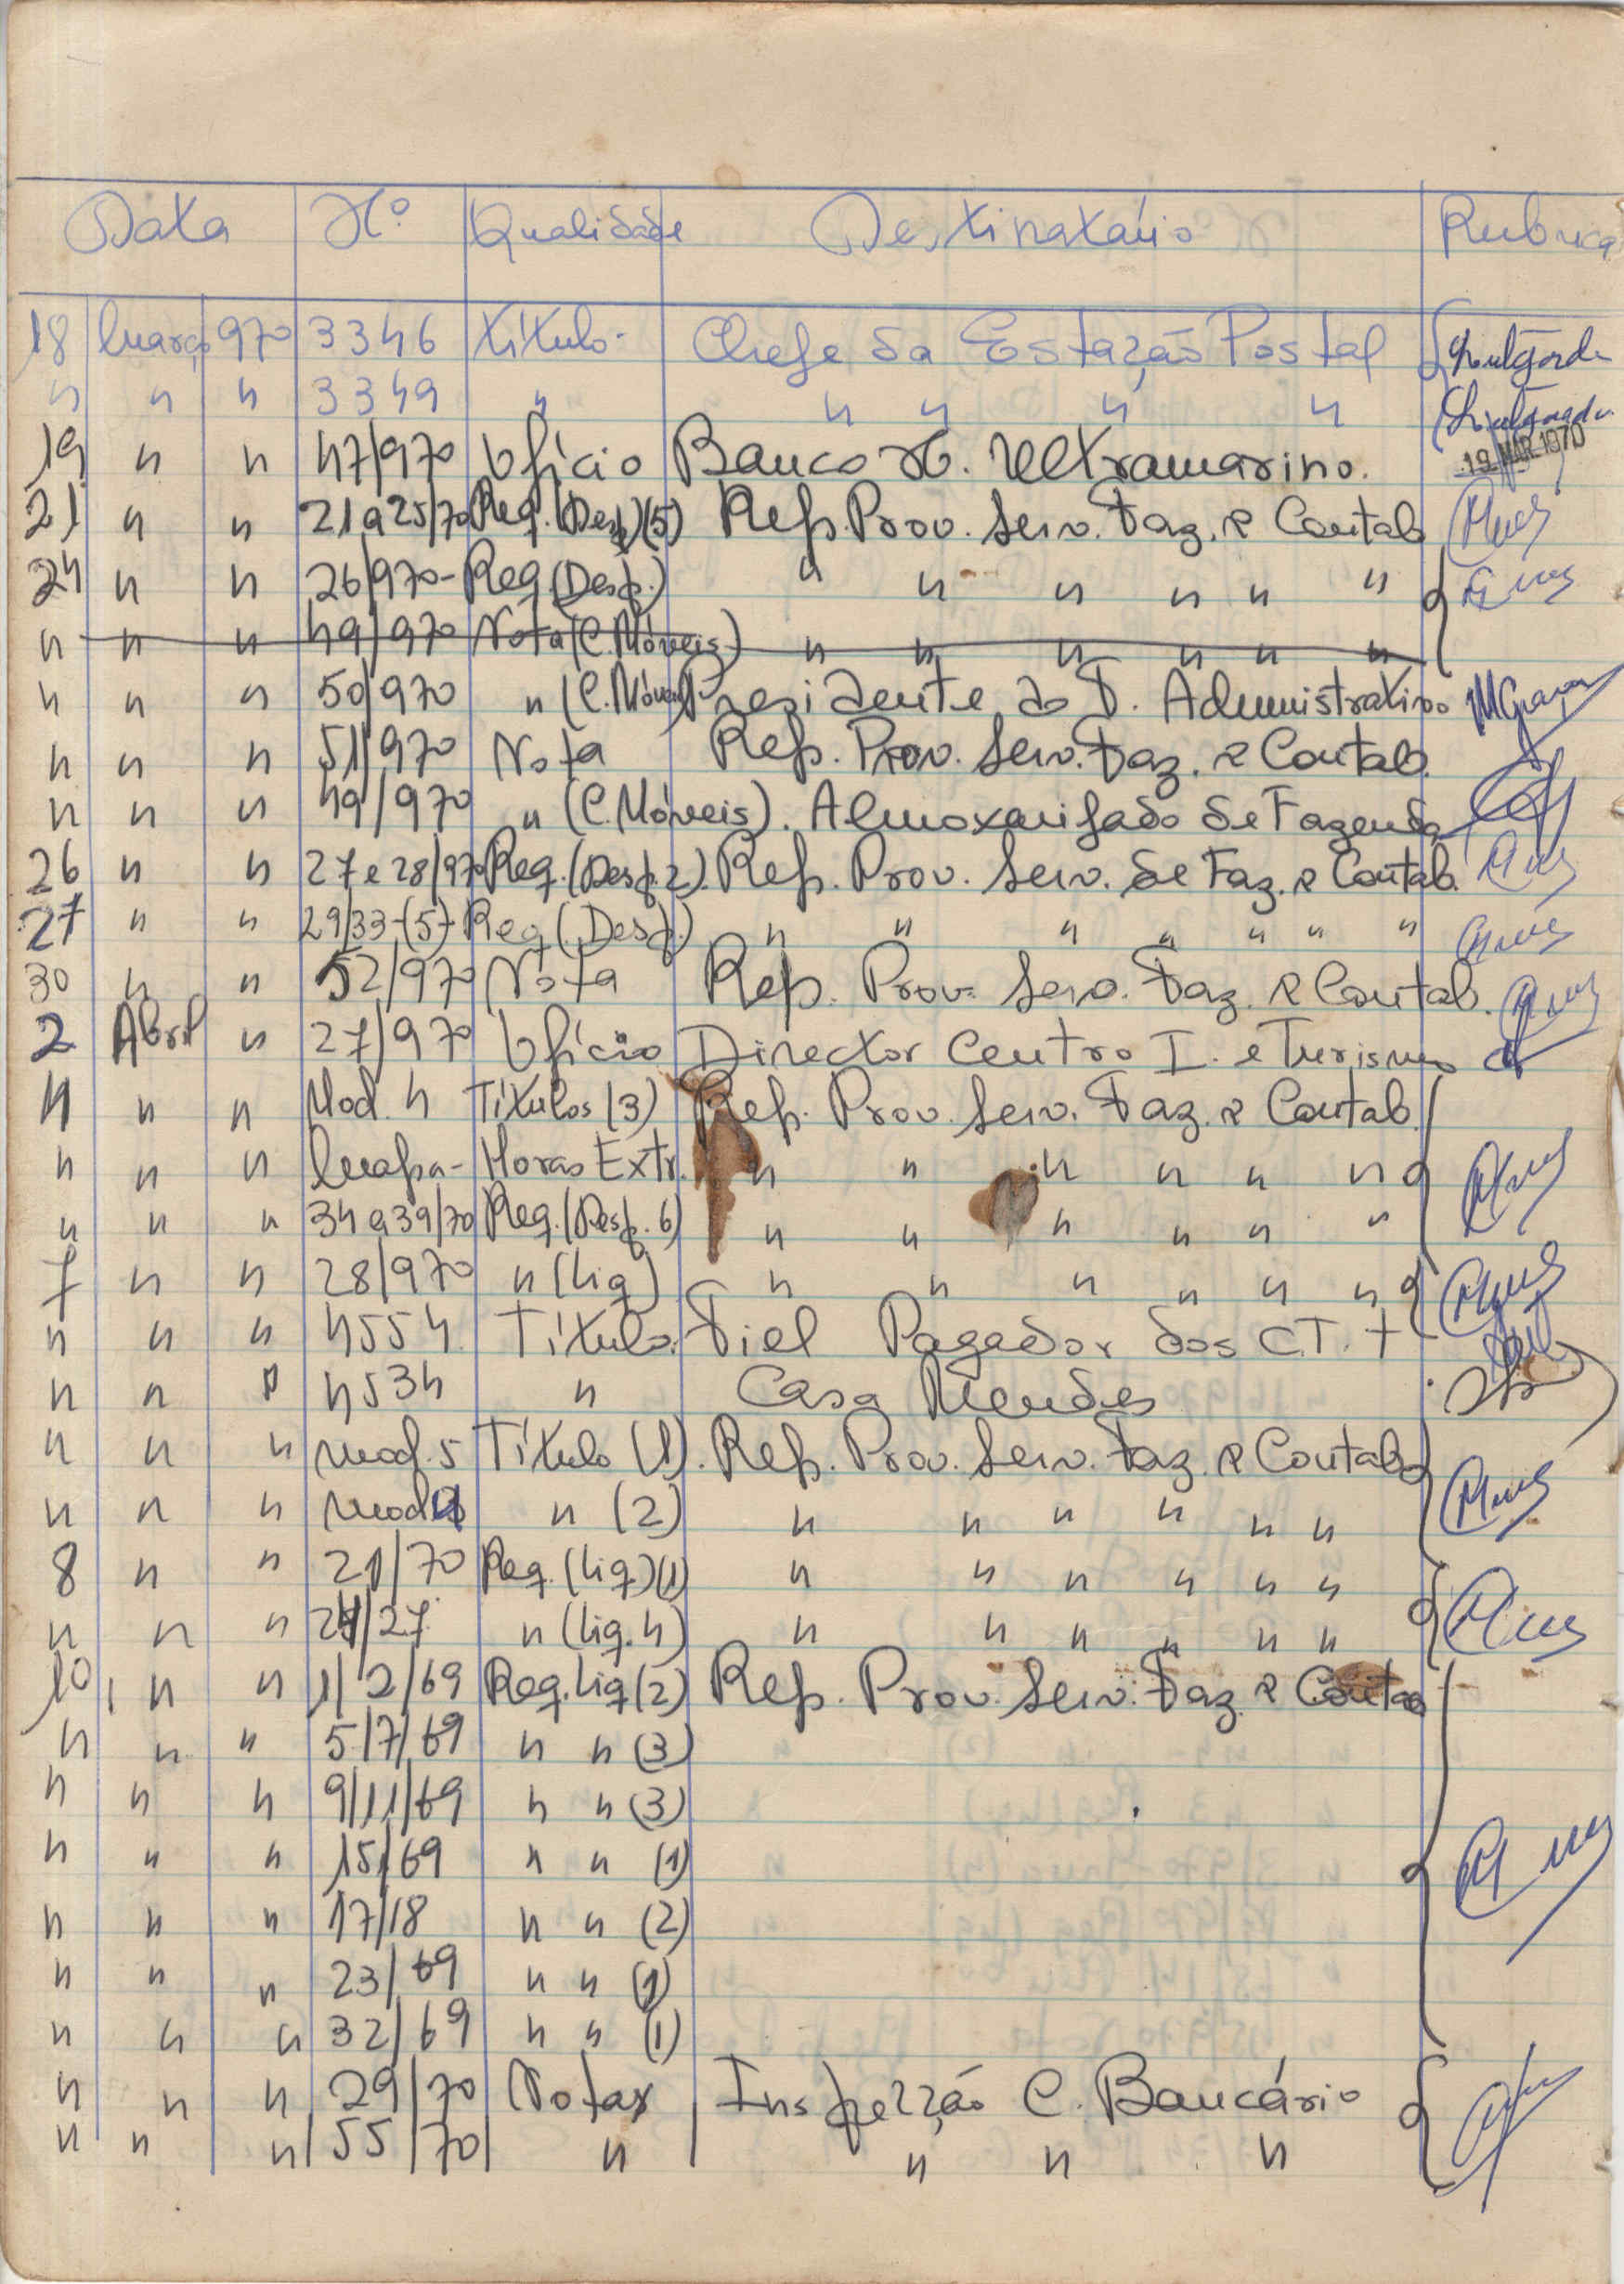 Data Nº Qualidade Destinatário Rubrica
18 Março 970 3346 Título - Chefe da Estação Postal
" " " 3349 " " " " "
19 " " 47/970 Ofício Banco N. Ultramarino. 19 MAR. 1970
21 " " 21 a 25/70 Req. (Desp.) (5) Rep. Prov. Serv. Faz. e Contab
24 " " 26/970 - Req. (Desp.) " " " " " "
" " " 49/970 Nota (C. Móveis) " " " " " "
" " " 50/970 " (C. Móveis) Presidente do T. Administrativo
" " " 51/970 Nota Rep. Prov. Serv. Faz. e Contab.
" " " 49/970 " (C. Móveis). Almoxarifado de Fazenda
26 " " 27 e 28/970 Req. (Desp. 2). Rep. Prov. Serv. de Faz. e Contab.
27 " " 29/33-(5)- Req. (Desp.) " " " " " " "
30 " " 52/970 Nota Rep. Prov. Serv. Faz. e Contab.
2 Abril " 27/970 Ofício Director Centro I. e Turismo
4 " " Mod. 4 Títulos (3) Rep. Prov. Serv. Faz. e Contab.
" " " Mapa - Horas Extr. " " " " " "
" " " 34 a 39/70 Req. (Desp. 6) " " " " " "
7 " " 28/970 " (Liq) " " " " " "
" " " 4554 Título. Fiel Pagador dos C.T.T
" " " 4534 " Casa Mendes
" " " Mod. 5 Título (1). Rep. Prov. Serv. Faz. e Contab
" " " Mod. " (2) " " " " " "
8 " " 21/70 Req. (Liq) (1) " " " " " "
" " " 24/27. " (Liq. 4) " " " " " "
10 " " 1/2/69 Req. Liq (2) Rep. Prov. Serv. Faz. e Contab
" " " 5/7/69 " " (3)
" " " 9/11/69 " " (3)
" " " 15/69 " " (1)
" " " 17/18 " " (2)
" " " 23/69 " " (1)
" " " 32/69 " " (1)
" " " 29/70 Notas Inspecção C. Bancário
" " " 55/70 " " " "